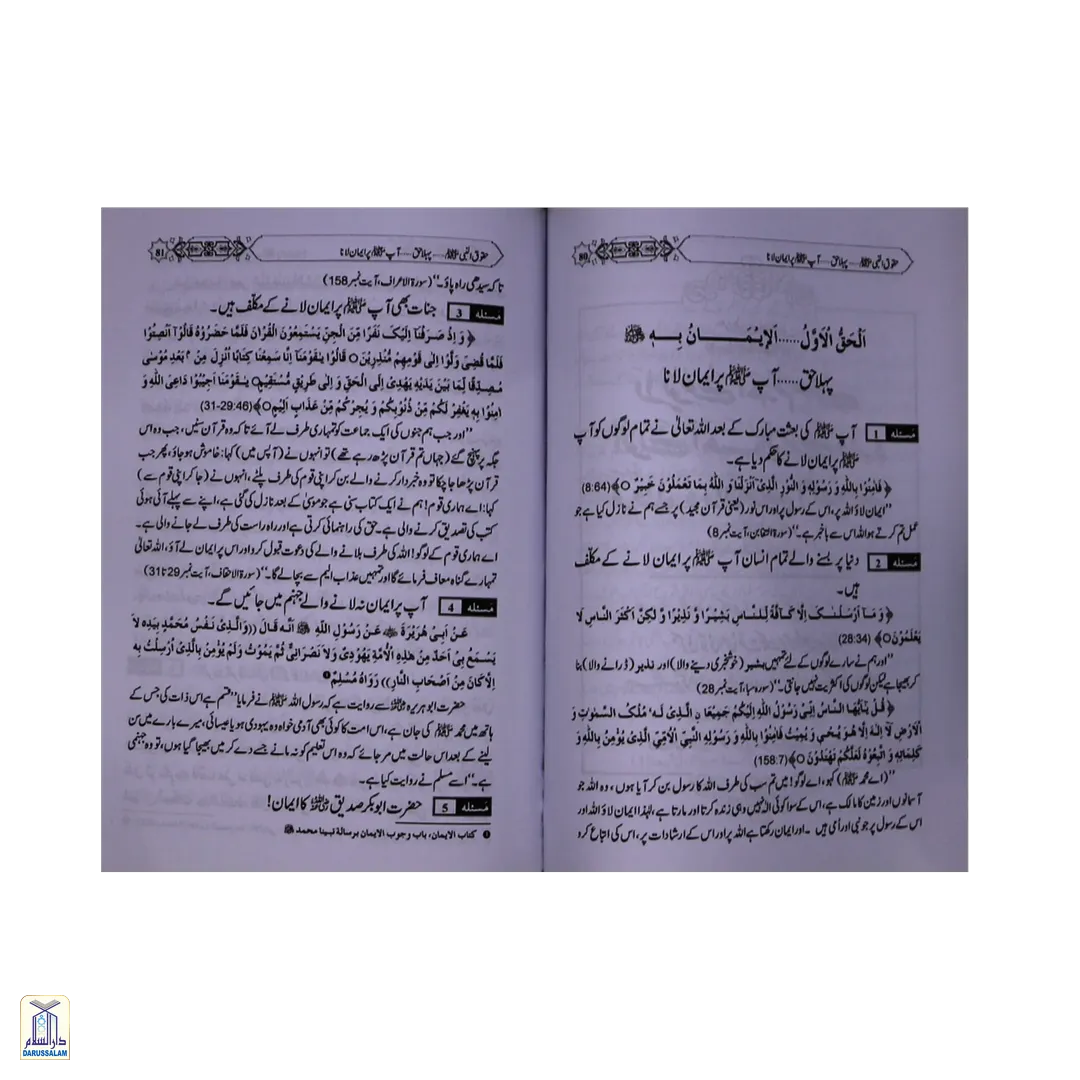 حقوق النبی ﷺ ..... پہلا حق ..... آپ ﷺ پر ایمان لانا
80
اَلْحَقُّ الْاَوَّلُ......اَلْاِيْمَـــــــانُ بِـــهٖ ﷺ
پہلا حق......آپ ﷺ پر ایمان لانا
مسئلہ 1 آپ ﷺ کی بعثت مبارک کے بعد اللہ تعالیٰ نے تمام لوگوں کو آپ
ﷺ پر ایمان لانے کا حکم دیا ہے۔
﴿ فَاٰمِنُوْا بِاللّٰهِ وَ رَسُوْلِهٖ وَ النُّوْرِ الَّذِیْٓ اَنْزَلْنَا وَ اللّٰهُ بِمَا تَعْمَلُوْنَ خَبِیْرٌ ○﴾(8:64)
''ایمان لاؤ اللہ پر، اس کے رسول پر اور اس نور (یعنی قرآن مجید) پر جسے ہم نے نازل کیا ہے جو
عمل تم کرتے ہو اللہ اس سے باخبر ہے۔'' (سورۃ التغابن، آیت نمبر 8)
مسئلہ 2 دنیا پر بسنے والے تمام انسان آپ ﷺ پر ایمان لانے کے مکلّف
ہیں۔
﴿ وَ مَـآ اَرْسَلْنٰـکَ اِلَّا کَـآفَّةً لِّلنَّاسِ بَشِیْـرًا وَّ نَذِیْرًا وَّ لٰکِنَّ اَکْثَرَ النَّاسِ لَا
یَعْلَمُوْنَ○﴾ (28:34)
''اور ہم نے سارے لوگوں کے لئے تمہیں بشیر (خوشخبری دینے والا) اور نذیر (ڈرانے والا) بنا
کر بھیجا ہے لیکن لوگوں کی اکثریت نہیں جانتی۔'' (سورہ سبا، آیت نمبر 28)
﴿ قُـلْ یٰٓاَیُّهَا النَّاسُ اِنِّیْ رَسُوْلُ اللّٰهِ اِلَیْکُمْ جَمِیْعَا نِ الَّـذِیْ لَـهٗ مُلْکُ السَّمٰوٰتِ وَ
الْاَرْضِ لَآ اِلٰـهَ اِلَّا هُـوَ یُـحْیٖ وَ یُمِیْتُ فَاٰمِنُوْا بِاللّٰهِ وَ رَسُوْلِهِ النَّبِیِّ الْاُمِّیِّ الَّذِیْ یُؤْمِنُ بِاللّٰهِ وَ
کَلِمٰتِهٖ وَ اتَّبِعُوْهُ لَعَلَّکُمْ تَهْتَدُوْنَ ○﴾(158:7)
''(اے محمد ﷺ) کہو، اے لوگو! میں تم سب کی طرف اللہ کا رسول بن کر آیا ہوں، وہ اللہ جو
آسمانوں اور زمین کا مالک ہے، اس کے سوا کوئی الٰہ نہیں وہی زندہ کرتا اور مارتا ہے، لہٰذا ایمان لاؤ اللہ اور
اس کے رسول پر جو نبی اور اُمی ہیں ۔ اور ایمان رکھتا ہے اللہ پر اور اس کے ارشادات پر، اس کی اتباع کرو
حقوق النبی ﷺ ..... پہلا حق ..... آپ ﷺ پر ایمان لانا
81
تا کہ سیدھی راہ پاؤ۔'' (سورۃ الاعراف، آیت نمبر 158)
مسئلہ 3 جنات بھی آپ ﷺ پر ایمان لانے کے مکلّف ہیں۔
﴿ وَ اِذْ صَرَفْنَآ اِلَیْکَ نَفَرًا مِّنَ الْجِنِّ یَسْتَمِعُوْنَ الْقُرْاٰنَ فَلَمَّا حَضَرُوْهُ قَالُوْٓا اَنْصِتُوْا
فَلَمَّا قُضِیَ وَلَّوْا اِلٰی قَوْمِهِمْ مُّنْذِرِیْنَ○ قَالُوْا یٰـقَوْمَنَآ اِنَّا سَمِعْنَا کِتٰبًا اُنْزِلَ مِنْ ۢ بَعْدِ مُوْسٰی
مُصَـدِّقًا لِّمَا بَیْنَ یَدَیْهِ یَهْدِیْٓ اِلَی الْحَقِّ وَ اِلٰی طَرِیْقٍ مُّسْتَقِیْمٍ○ یٰـقَوْمَنَآ اَجِیْبُوْا دَاعِیَ اللّٰهِ وَ
اٰمِنُوْا بِهٖ یَغْفِرْ لَکُمْ مِّنْ ذُنُوْبِکُمْ وَ یُجِرْکُمْ مِّنْ عَذَابٍ اَلِیْمٍ○﴾(46:29-31)
''اور جب ہم جنوں کی ایک جماعت کو تمہاری طرف لے آئے تا کہ وہ قرآن سنیں، جب وہ اس
جگہ پر پہنچ گئے (جہاں تم قرآن پڑھ رہے تھے) تو انہوں نے (آپس میں) کہا: خاموش ہو جاؤ، پھر جب
قرآن پڑھا جا چکا تو وہ خبردار کرنے والے بن کر اپنی قوم کی طرف پلٹے، انہوں نے (جا کر اپنی قوم سے)
کہا: اے ہماری قوم! ہم نے ایک کتاب سنی ہے جو موسیٰ کے بعد نازل کی گئی ہے، اپنے سے پہلے آئی ہوئی
کتب کی تصدیق کرنے والی ہے۔ حق کی راہنمائی کرتی ہے اور راہ راست کی طرف لے جانے والی ہے۔
اے ہماری قوم کے لوگو! اللہ کی طرف بلانے والے کی دعوت قبول کرو اور اس پر ایمان لے آؤ، اللہ تعالیٰ
تمہارے گناہ معاف فرمائے گا اور تمہیں عذاب الیم سے بچا لے گا۔'' (سورۃ الاحقاف، آیت نمبر 29 تا 31)
مسئلہ 4 آپ پر ایمان نہ لانے والے جہنم میں جائیں گے۔
عَنْ اَبِیْ هُرَیْرَةَ ؓ عَنْ رَسُوْلِ اللّٰهِ ﷺ اَنَّـه قَالَ ((وَالَّـذِیْ نَفْسُ مُحَمَّدٍ بِیَدِهٖ لاَ
یَسْـمَعُ بِیْ اَحَدٌ مِنْ هٰذِهِ الْاُمَّةِ یَهُوْدِیٌّ وَلاَ نَصْرَانِیٌّ ثُمَّ یَمُوْتُ وَلَمْ یُؤْمِنْ بِالَّذِیْ اُرْسِلْتُ بِهٖ
اِلَّا کَانَ مِنْ اَصْحَابِ النَّارِ)) رَوَاهُ مُسْلِمٌ ❶
حضرت ابوہریرہ ؓ سے روایت ہے کہ رسول اللہ ﷺ نے فرمایا ''قسم ہے اس ذات کی جس کے
ہاتھ میں محمد ﷺ کی جان ہے، اس امت کا کوئی بھی آدمی خواہ وہ یہودی ہو یا عیسائی، میرے بارے میں سن
لینے کے بعد اس حالت میں مر جائے کہ وہ اس تعلیم کو نہ مانے جسے دے کر میں بھیجا گیا ہوں، تو وہ جہنمی
ہے۔'' اسے مسلم نے روایت کیا ہے۔
مسئلہ 5 حضرت ابوبکر صدیق ؓ کا ایمان!
❶ کتاب الایمان، باب وجوب الایمان برسالة نبینا محمد ﷺ
دارالسلام
DARUSSALAM